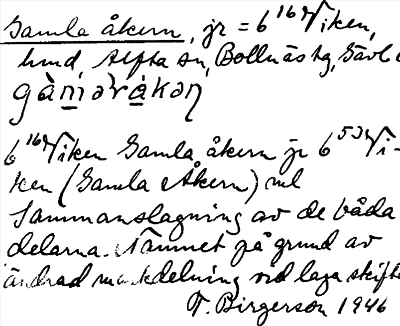 Gamla åkern, jr = 6¹⁶ Viken,
hmd, Alfta sn, Bollnäs tg, Gävl
gàmərákəƞ
6¹⁶ Viken Gamla åkern jr 6⁵³ Vi-
ken (Gamla Åkern) vid
Sammanslagning av de båda
delarna. Namnet på grund av
ändrad markdelning vid laga skifte
T. Birgerson 1946